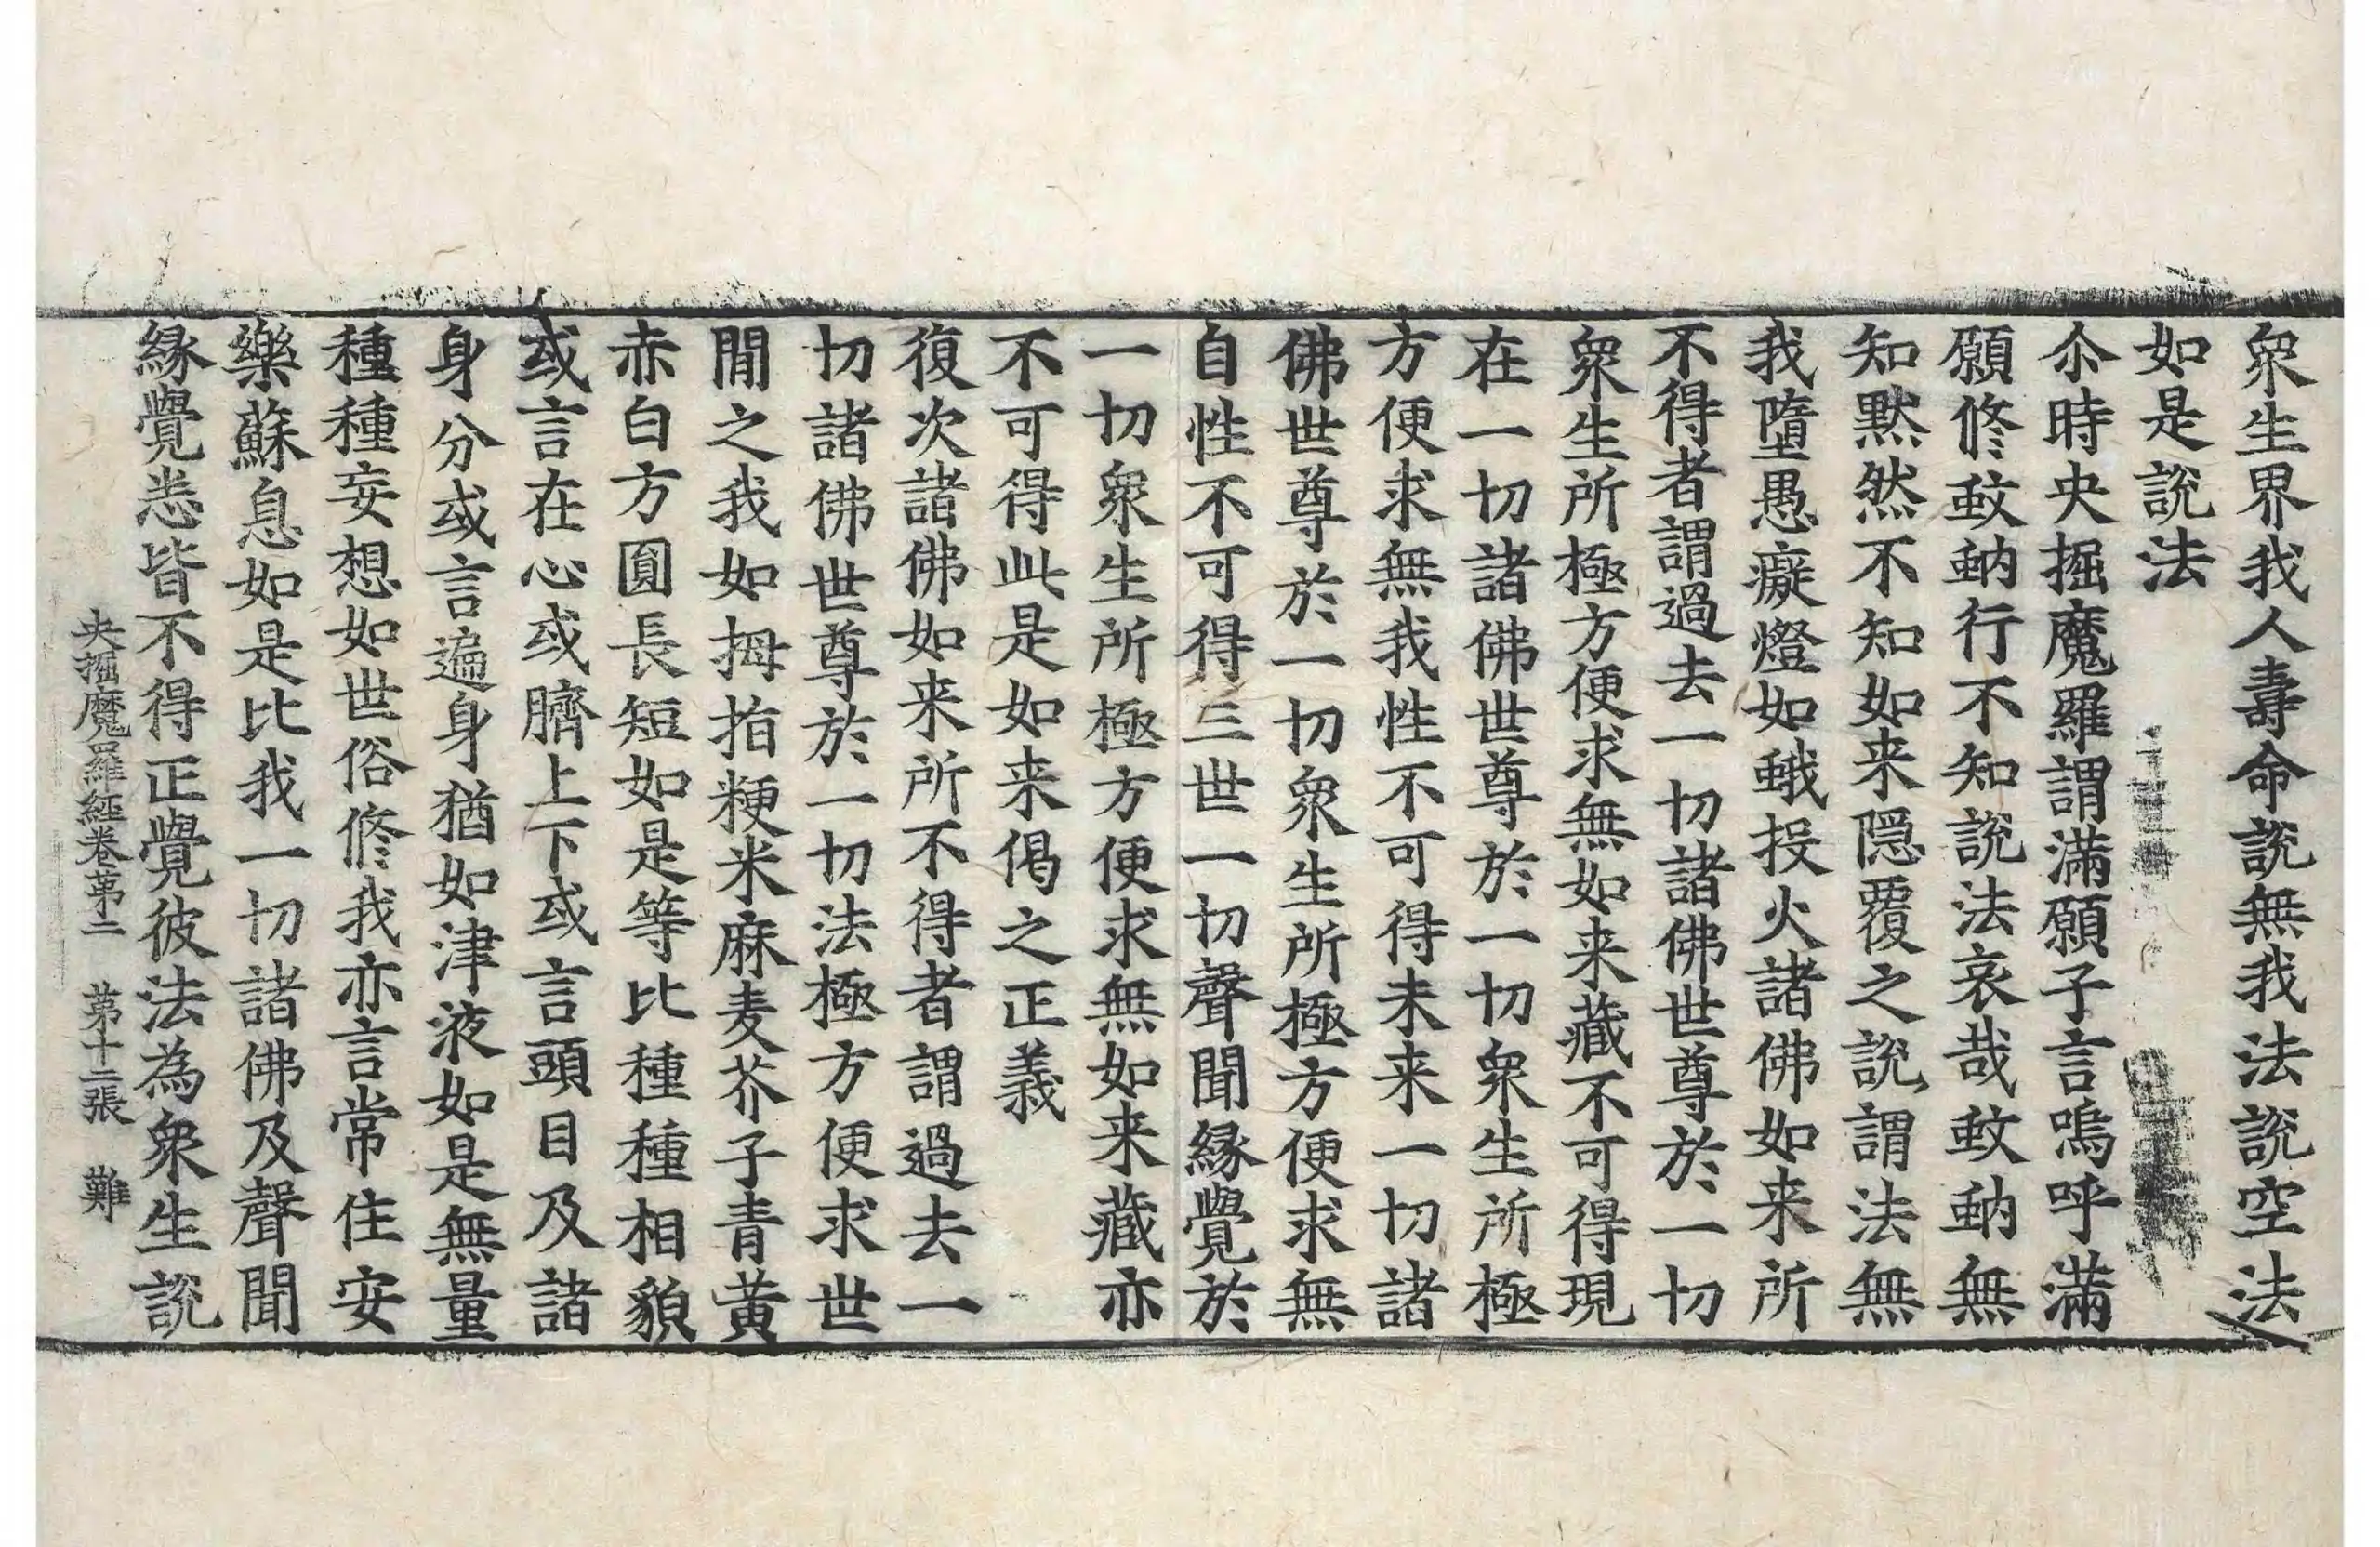 衆生界我人壽命說無我法說空法
如是說法
尒時央掘魔羅謂滿願子言嗚呼滿
願修蚊蚋行不知說法哀哉蚊蚋無
知黙然不知如来隱覆之說謂法無
我墮愚癡燈如蛾投火諸佛如来所
不得者謂過去一切諸佛世尊於一切
衆生所極方便求無如来藏不可得現
在一切諸佛世尊於一切衆生所極
方便求無我性不可得未来一切諸
佛世尊於一切衆生所極方便求無
自性不可得三世一切聲聞縁覺於
一切衆生所極方便求無如来藏亦
不可得此是如来偈之正義
復次諸佛如来所不得者謂過去一
切諸佛世尊於一切法極方便求世
閒之我如拇指粳米麻麦芥子青黄
赤白方圓長短如是等比種種相貌
或言在心或臍上下或言頭目及諸
身分或言遍身猶如津液如是無量
種種妄想如世俗修我亦言常住安
樂蘇息如是比我一切諸佛及聲聞
縁覺悉皆不得正覺彼法為衆生說
央掘魔羅經卷苐二 苐十二張 難